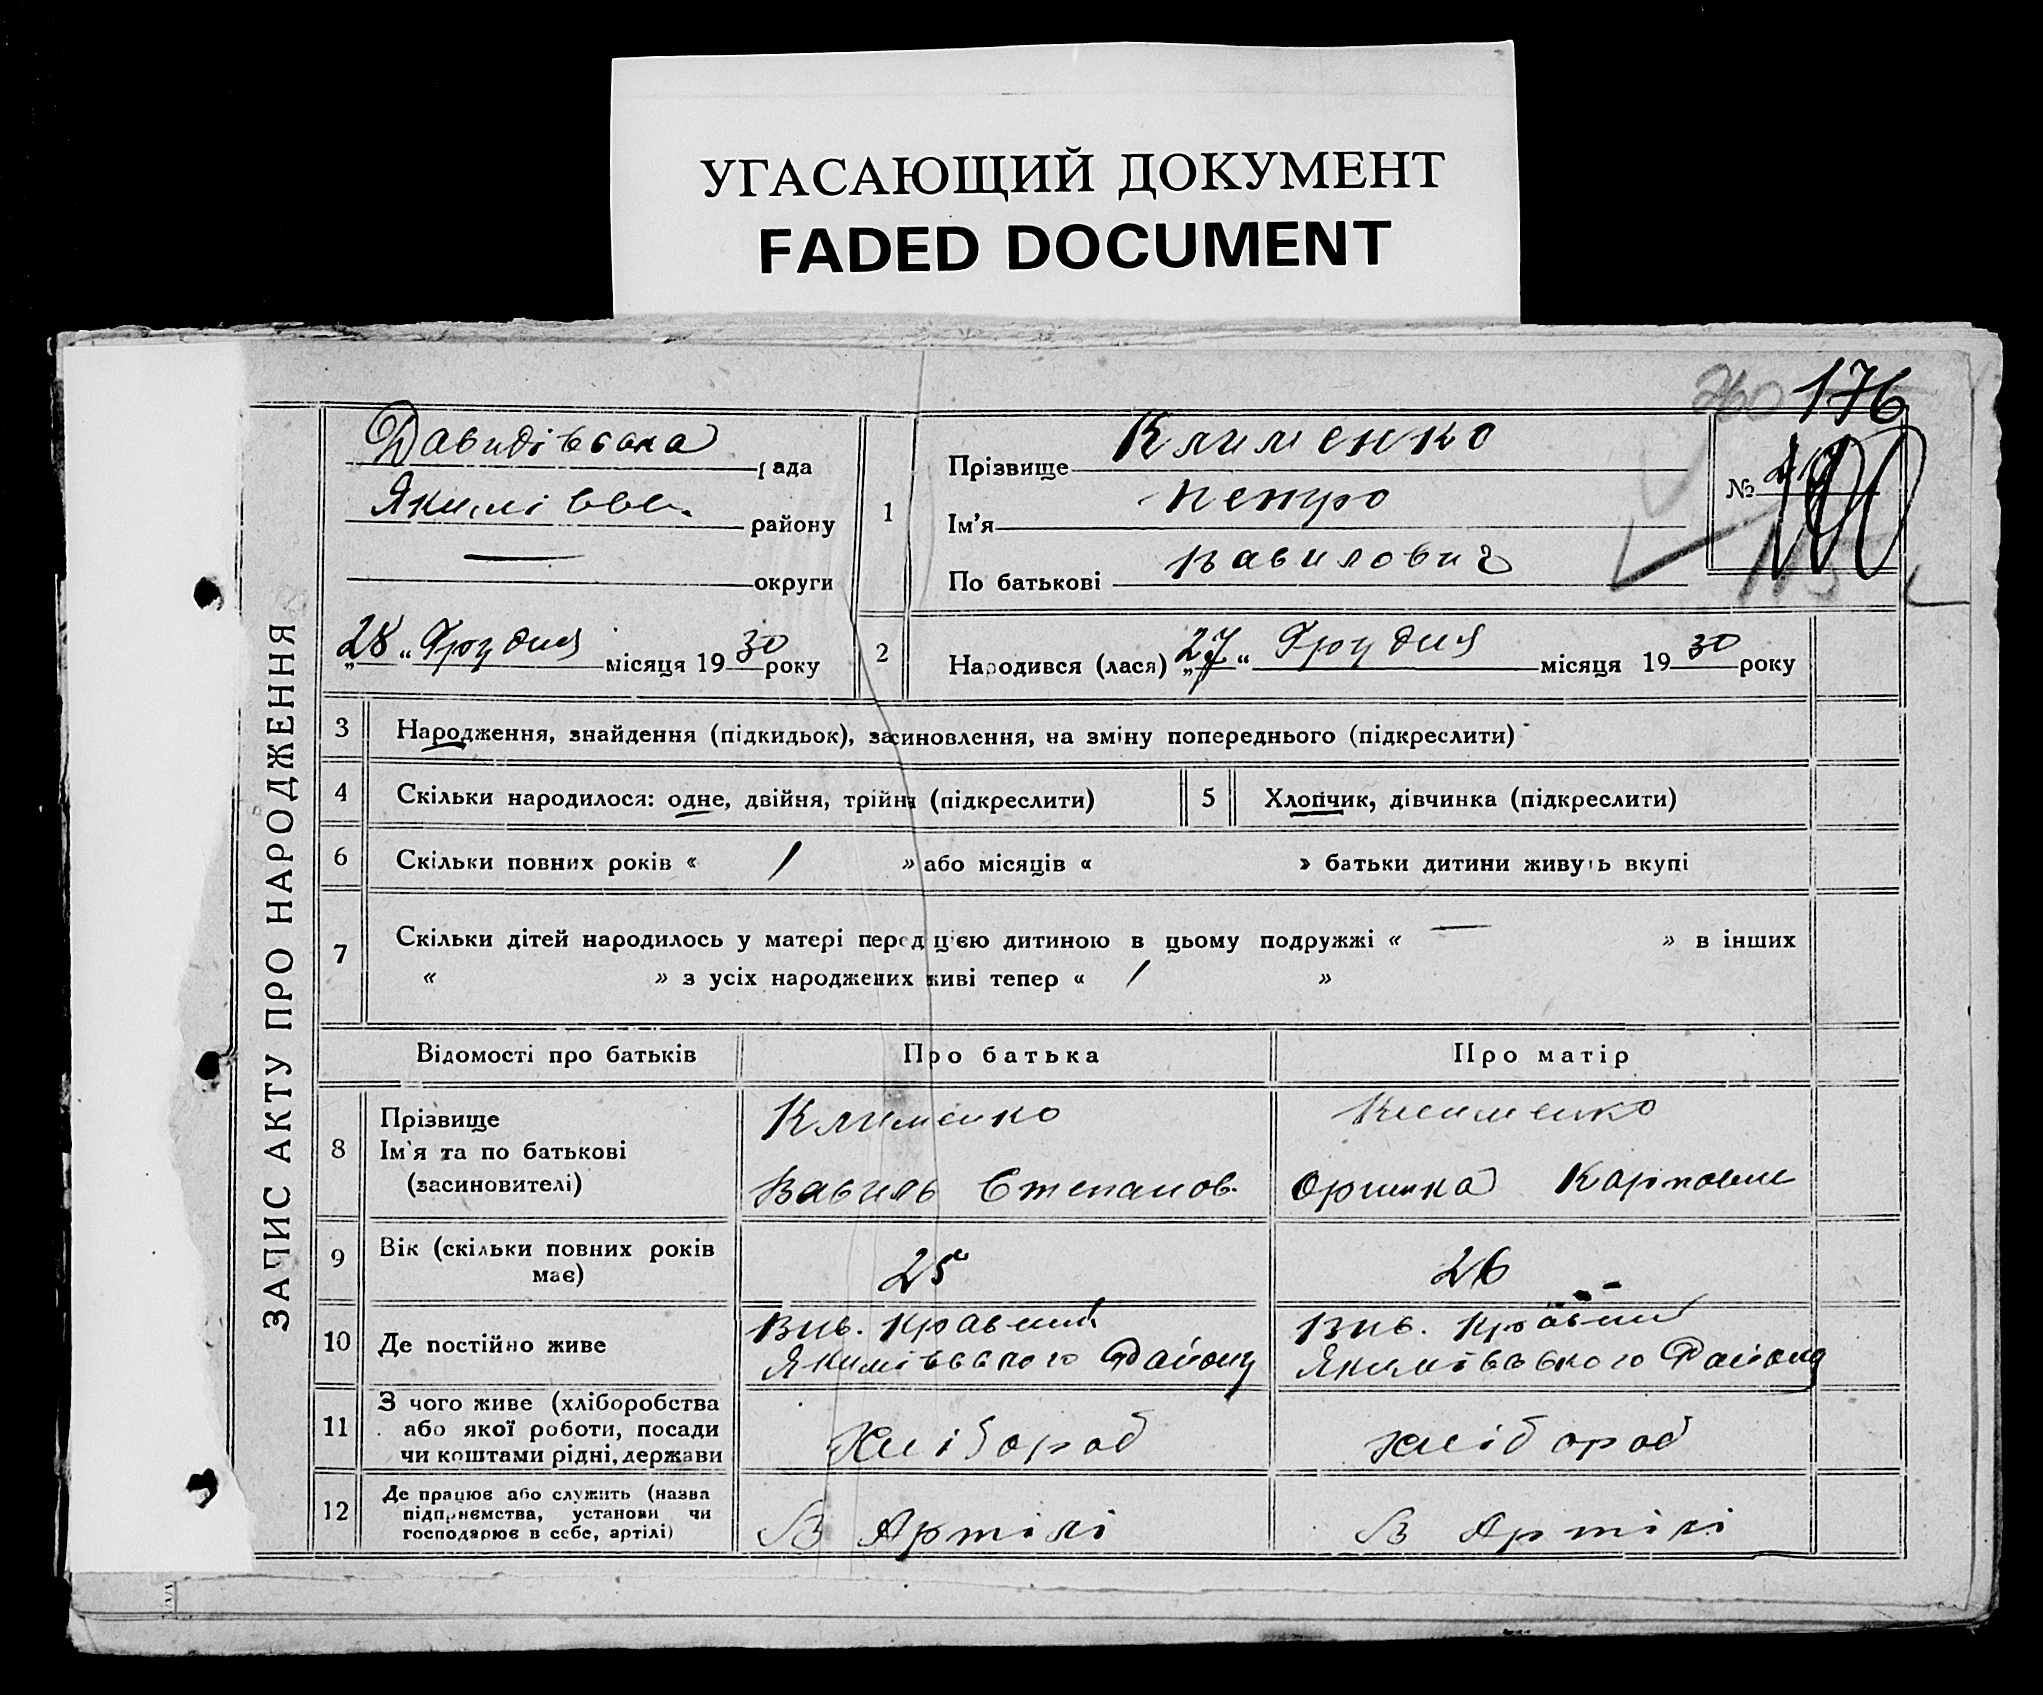 УГАСАЮЩИЙ ДОКУМЕНТ
FADED DOCUMENT
176
ЗАПИС АКТУ ПРО НАРОДЖЕННЯ
Давидівська рада
району
округи
„28“ Грудня місяця 1930 року
1
Прізвище Клименко
Ім’я Петро
По батькові Вавилович
№
2
Народився (лася) „27“ Грудня місяця 1930 року
3 Народження, знайдення (підкидьок), засиновлення, на зміну попереднього (підкреслити)
4 Скільки народилося: одне, двійня, трійня (підкреслити) 5 Хлопчик, дівчинка (підкреслити)
6 Скільки повних років « 1 » або місяців « » батьки дитини живуть вкупі
7 Скільки дітей народилось у матері перед цією дитиною в цьому подружжі « — » в інших
« » з усіх народжених живі тепер « 1 »
Відомості про батьків Про батька Про матір
8 Прізвище Клименко Клименко
Ім’я та по батькові
(засиновителі) Вавиль Степанов. Оришка
9 Вік (скільки повних років 25 26
має)
10 Де постійно живе
Якимівського Району Якимівського Району
11 З чого живе (хліборобства
або якої роботи, посади Хлібороб хлібороб
чи коштами рідні, держави
12 Де працює або служить (назва
підприємства, установи чи В Артілі В Артілі
господарює в себе, артілі)